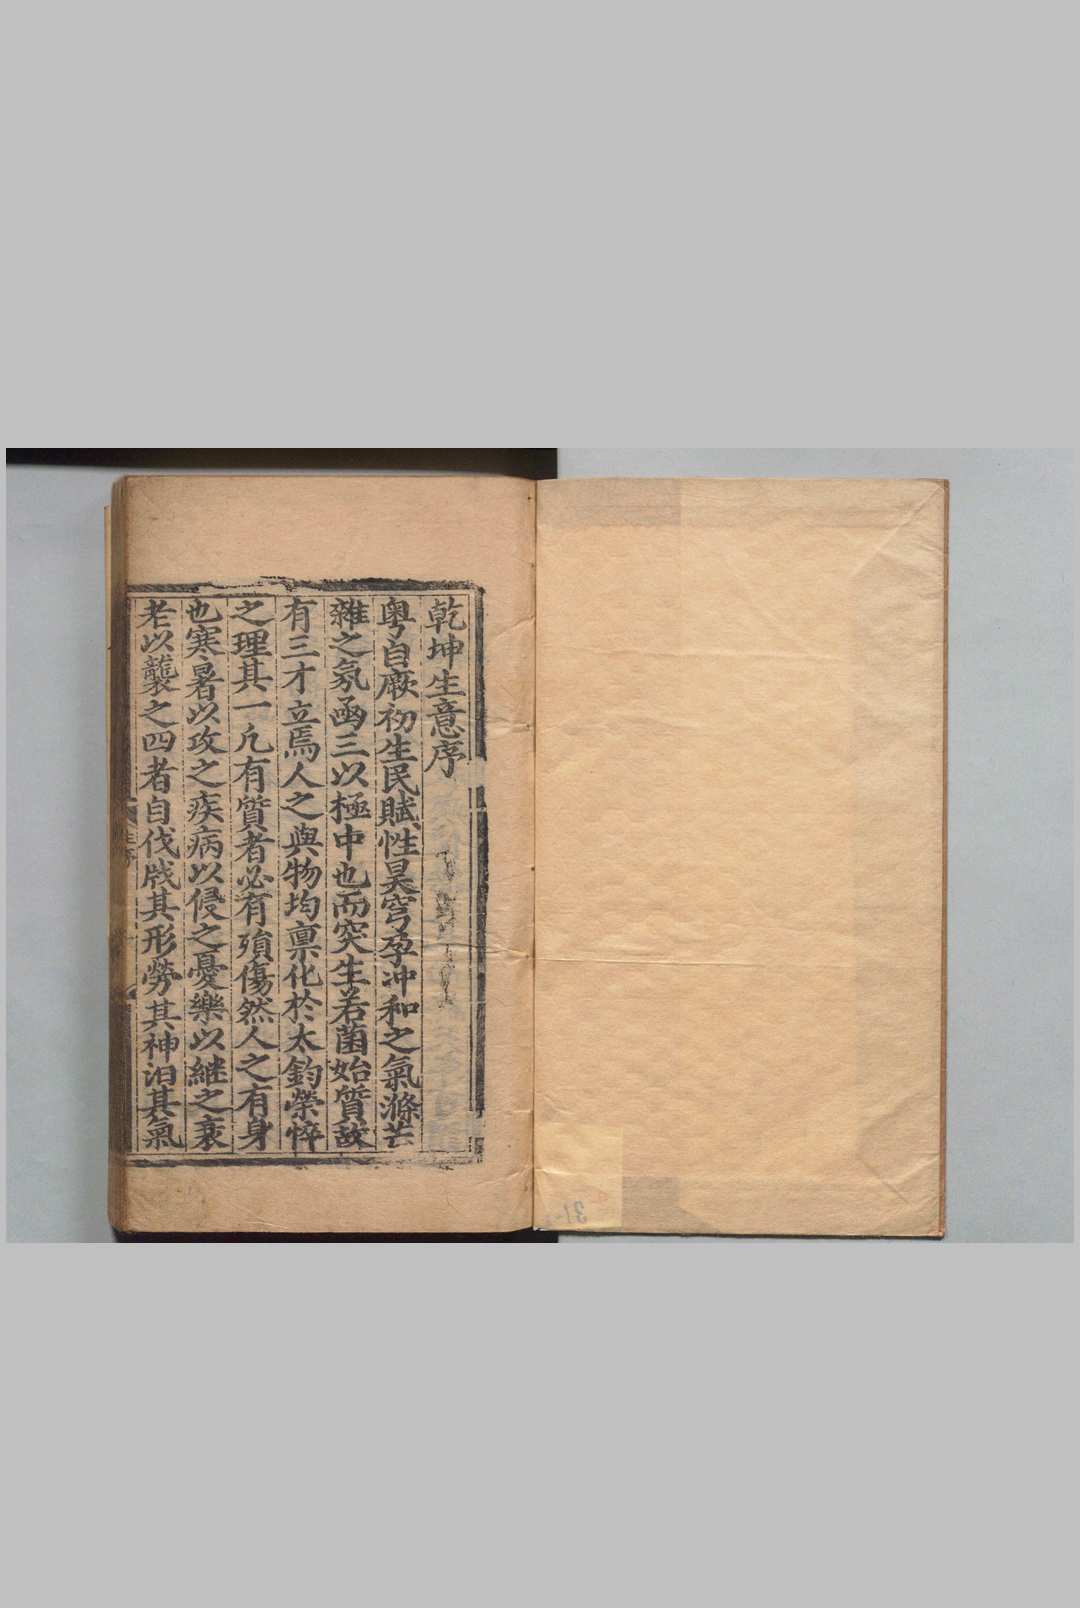 乾坤生意序
粤自厥初生民賦性昊穹孕冲和之氣滌芒
雜之氛函三以極中也而突生若菌始質故
有三才立焉人之與物均禀化於太鈞榮悴
之理其一凢有質者必有殞傷然人之有身
也寒暑以攻之疾病以侵之憂樂以繼之衰
老以襲之四者自伐戕其形勞其神汩其氣